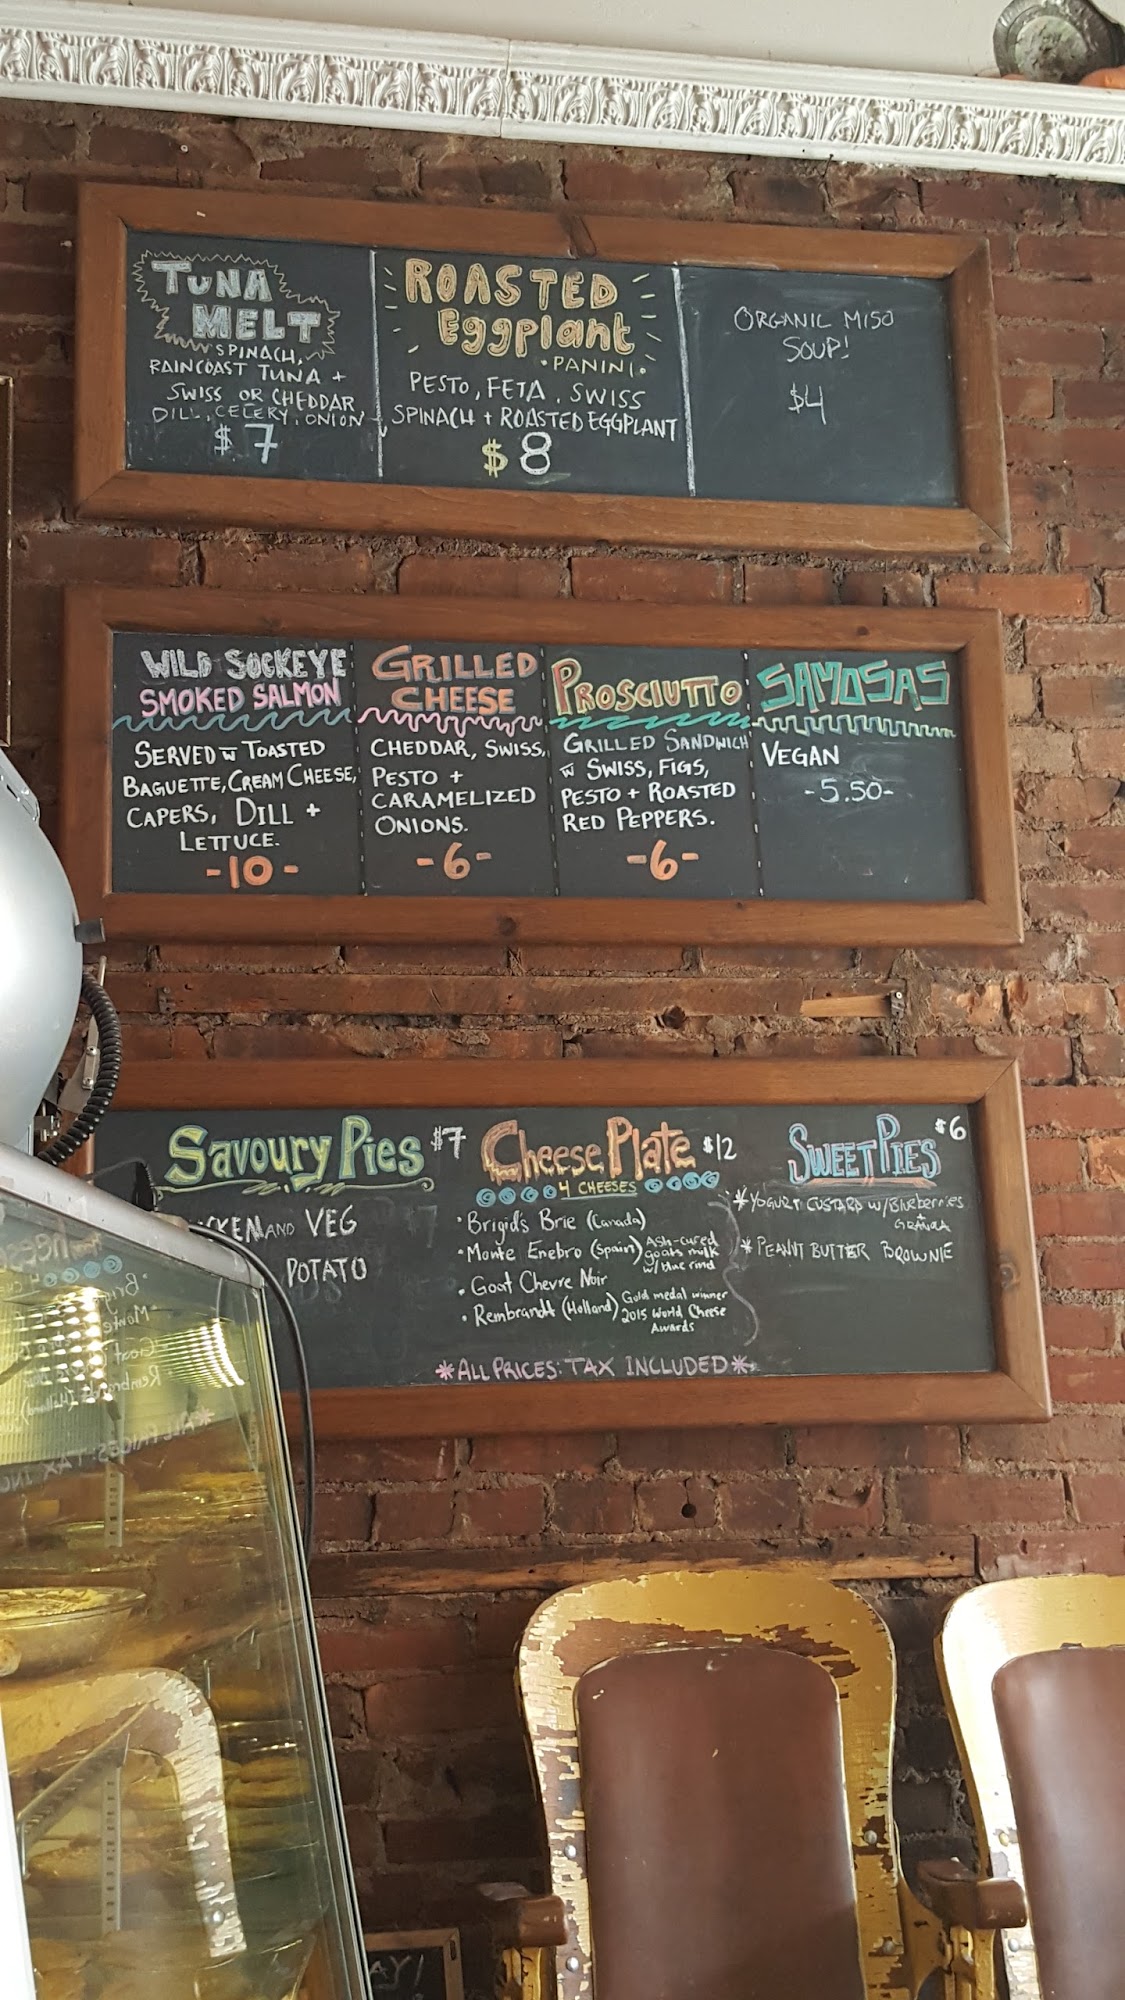 TUNA
MELT
SPINACH,
RAINCOAST TUNA +
SWISS OR CHEDDAR
DILL, CELERY, ONION
$7
ROASTED
Eggplant
• PANINI •
PESTO, FETA, SWISS
SPINACH + ROASTED EGGPLANT
$8
ORGANIC MISO
SOUP!
$4
WILD SOCKEYE
SMOKED SALMON
SERVED w TOASTED
BAGUETTE, CREAM CHEESE,
CAPERS, DILL +
LETTUCE.
-10-
GRILLED
CHEESE
CHEDDAR, SWISS,
PESTO +
CARAMELIZED
ONIONS.
-6-
PROSCIUTTO
GRILLED SANDWICH
w SWISS, FIGS,
PESTO + ROASTED
RED PEPPERS.
-6-
SAMOSAS
VEGAN
-5.50-
Savoury Pies $7
AND VEG
POTATO
Cheese Plate $12
4 CHEESES
• Brigid's Brie (Canada)
• Monte Enebro (Spain) Ash-cured
goats milk
w/ blue rind
• Goat Chevre Noir
• Rembrandt (Holland) Gold medal winner
2015 World Cheese
Awards
SWEET PIES $6
* YOGURT CUSTARD w/ Blueberries
+
* PEANUT BUTTER BROWNIE
*ALL PRICES: TAX INCLUDED*